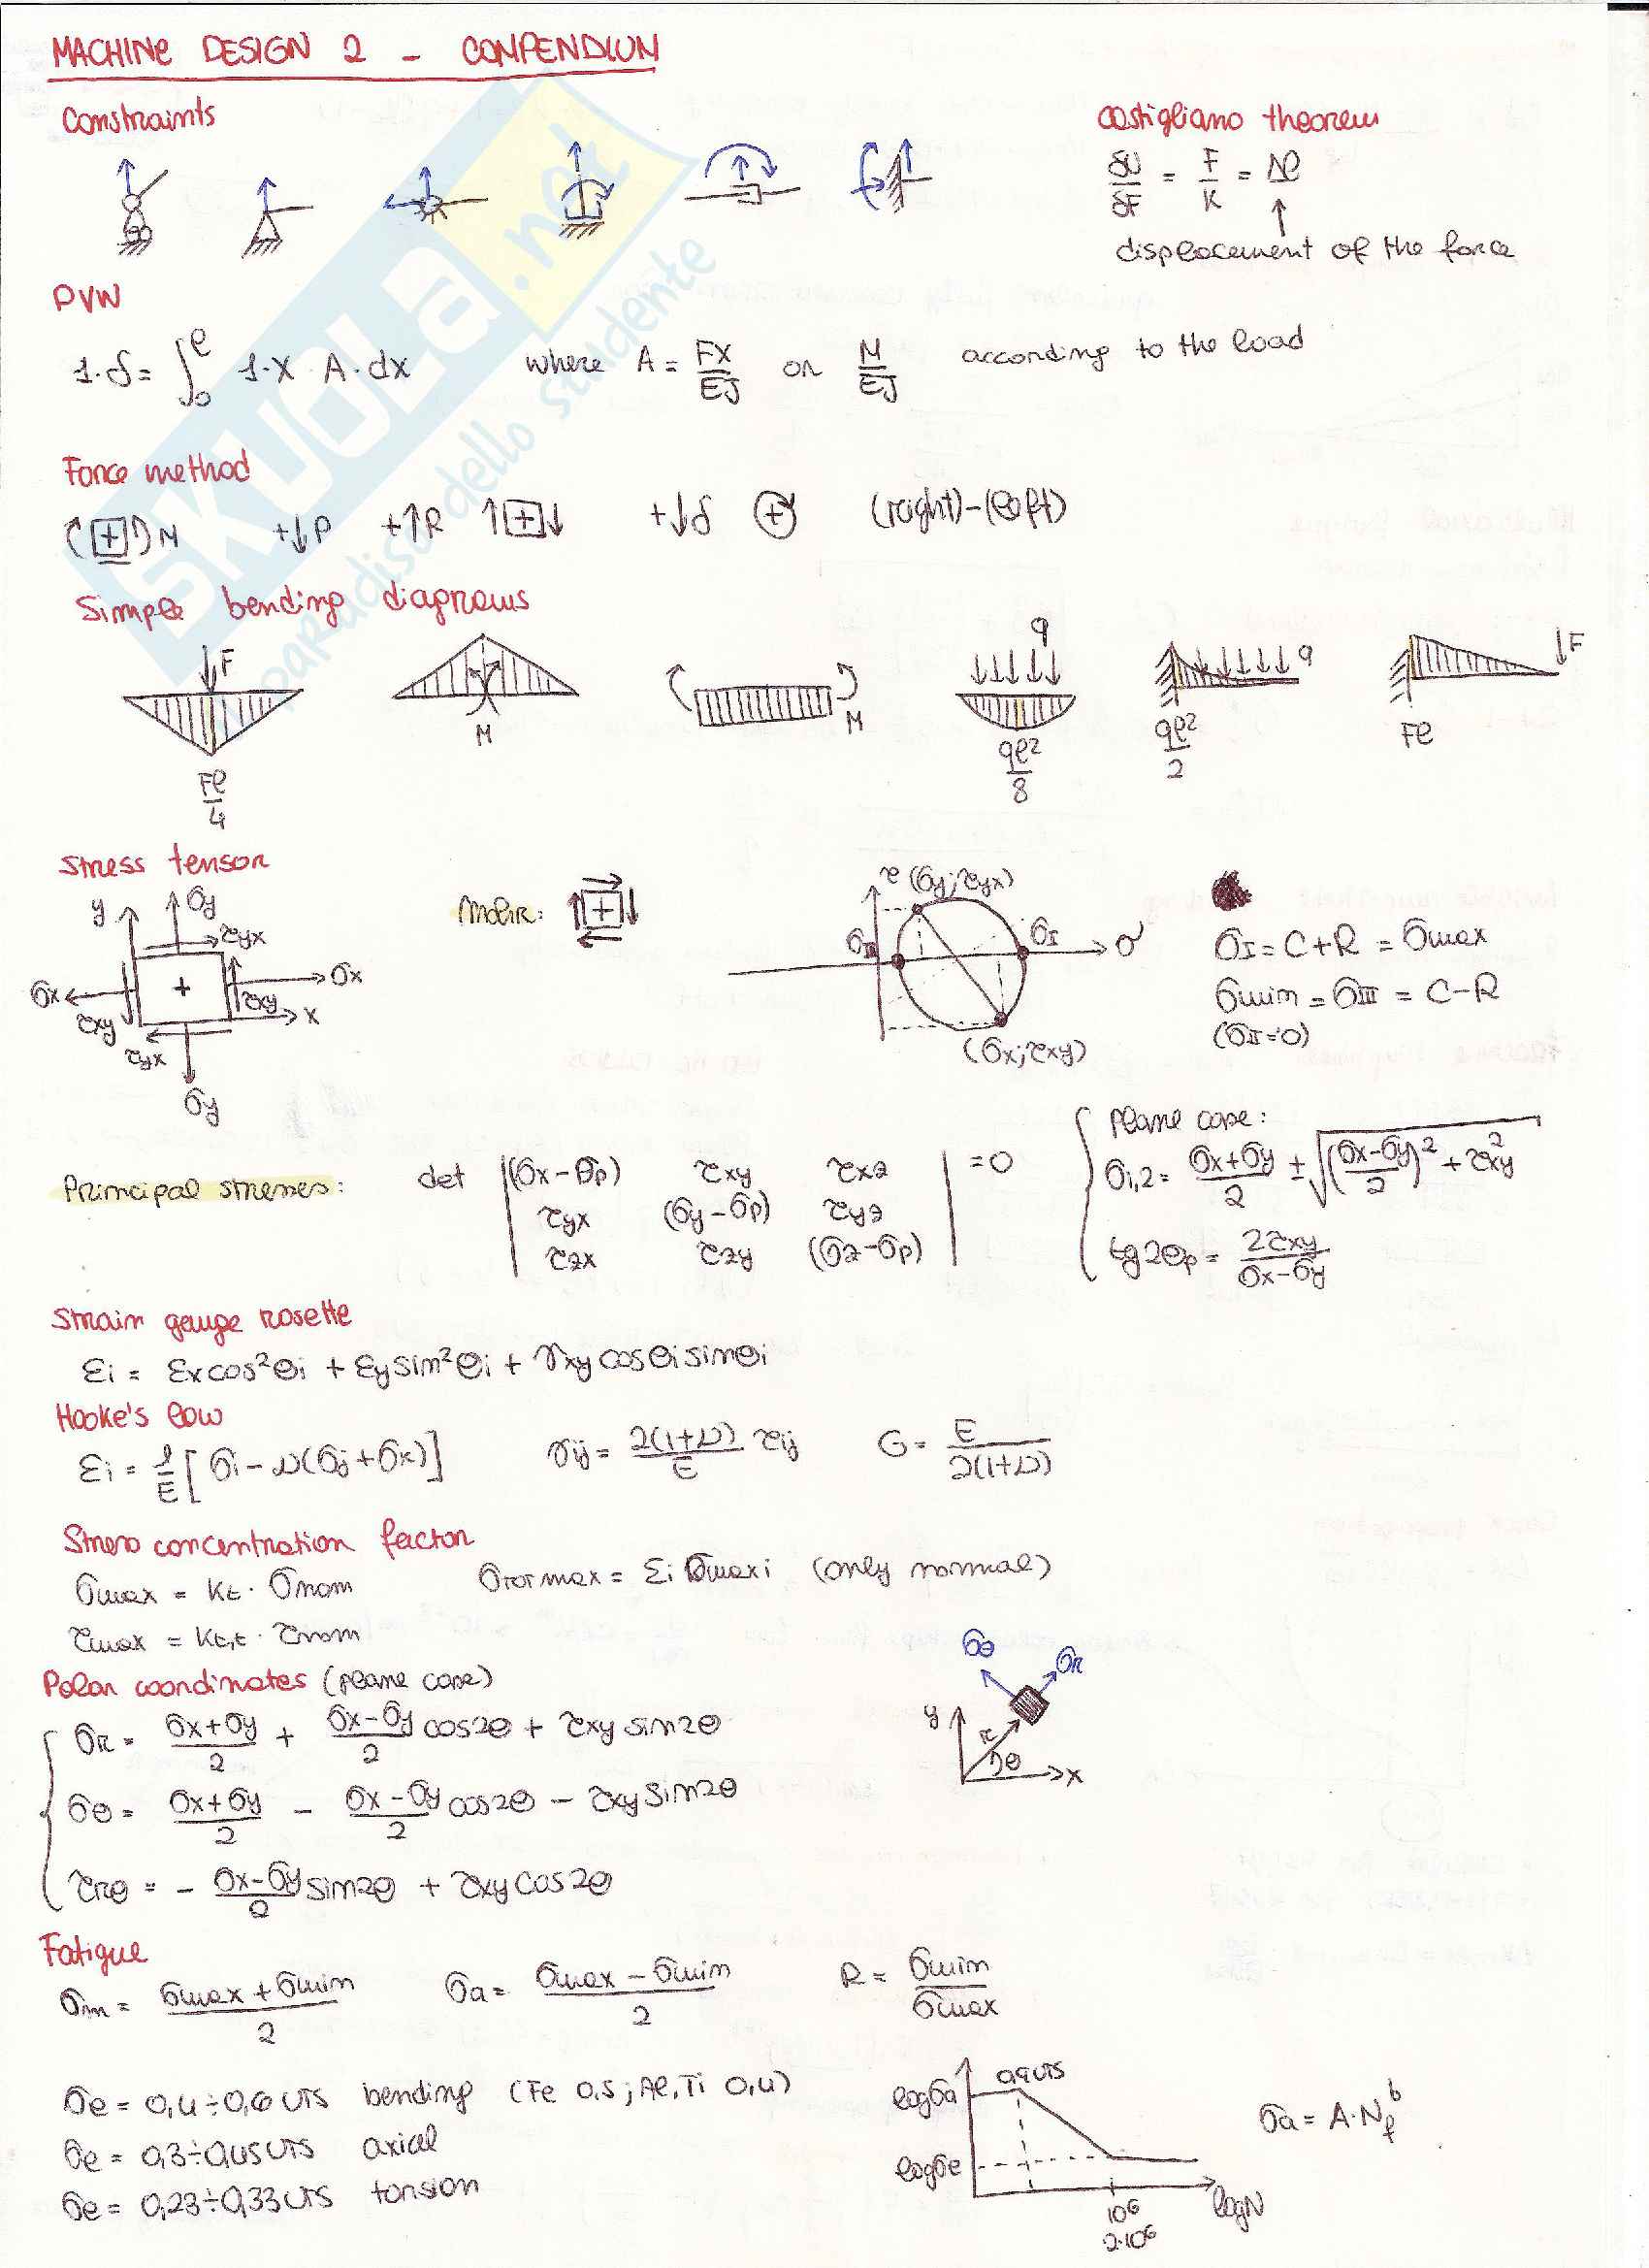 MACHINE DESIGN 2 - COMPENDIUM
Constraints
Castigliano theorem
δU/δF = F/K = Δl
displacement of the force
PVW
1·δ = ∫₀^l 1·X A·dx where A = FX/EJ or M/EJ according to the load
Force method
(+) M +↓P +↑R ↑+↓ +↓δ + (right)-(left)
Simple bending diagrams
F M M q q F
Fl/4 ql²/8 ql²/2 Fl
Stress tensor
y σy τyx σx τxy x σx τxy τyx σy
Mohr: +
τ (σy;τyx) σIII σI σ (σx;τxy)
σI = C+R = σmax
σmin = σIII = C-R
(σII=0)
Principal stresses: det |(σx-σp) τxy τxz| = 0
τyx (σy-σp) τyz
τzx τzy (σz-σp)
plane case:
σ1,2 = (σx+σy)/2 ± √(((σx-σy)/2)² + τxy²)
tg2θp = 2τxy/(σx-σy)
Strain gauge rosette
εi = εxcos²θi + εysin²θi + γxycosθisinθi
Hooke's law
εi = 1/E [σi - ν(σj+σk)] γij = 2(1+ν)/E τij G = E/2(1+ν)
Stress concentration factor
σmax = Kt · σnom σTOT max = Σi σmaxi (only normal)
τmax = Kt,t · τnom
Polar coordinates (plane case)
σR = (σx+σy)/2 + (σx-σy)/2 cos2θ + τxy sin2θ
σθ = (σx+σy)/2 - (σx-σy)/2 cos2θ - τxy sin2θ
τRθ = - (σx-σy)/2 sin2θ + τxy cos2θ
σθ σR y R θ x
Fatigue
σm = (σmax+σmin)/2 σa = (σmax-σmin)/2 R = σmin/σmax
σe = 0,4÷0,6 UTS bending (Fe 0.5; Al,Ti 0,4)
σe = 0,3÷0,45 UTS axial
σe = 0,23÷0,33 UTS torsion
0,9UTS
logσa
logσe
logN
10⁶
2·10⁶
σa = A·Nf^b
SKUOLA.net
paradiso dello studente